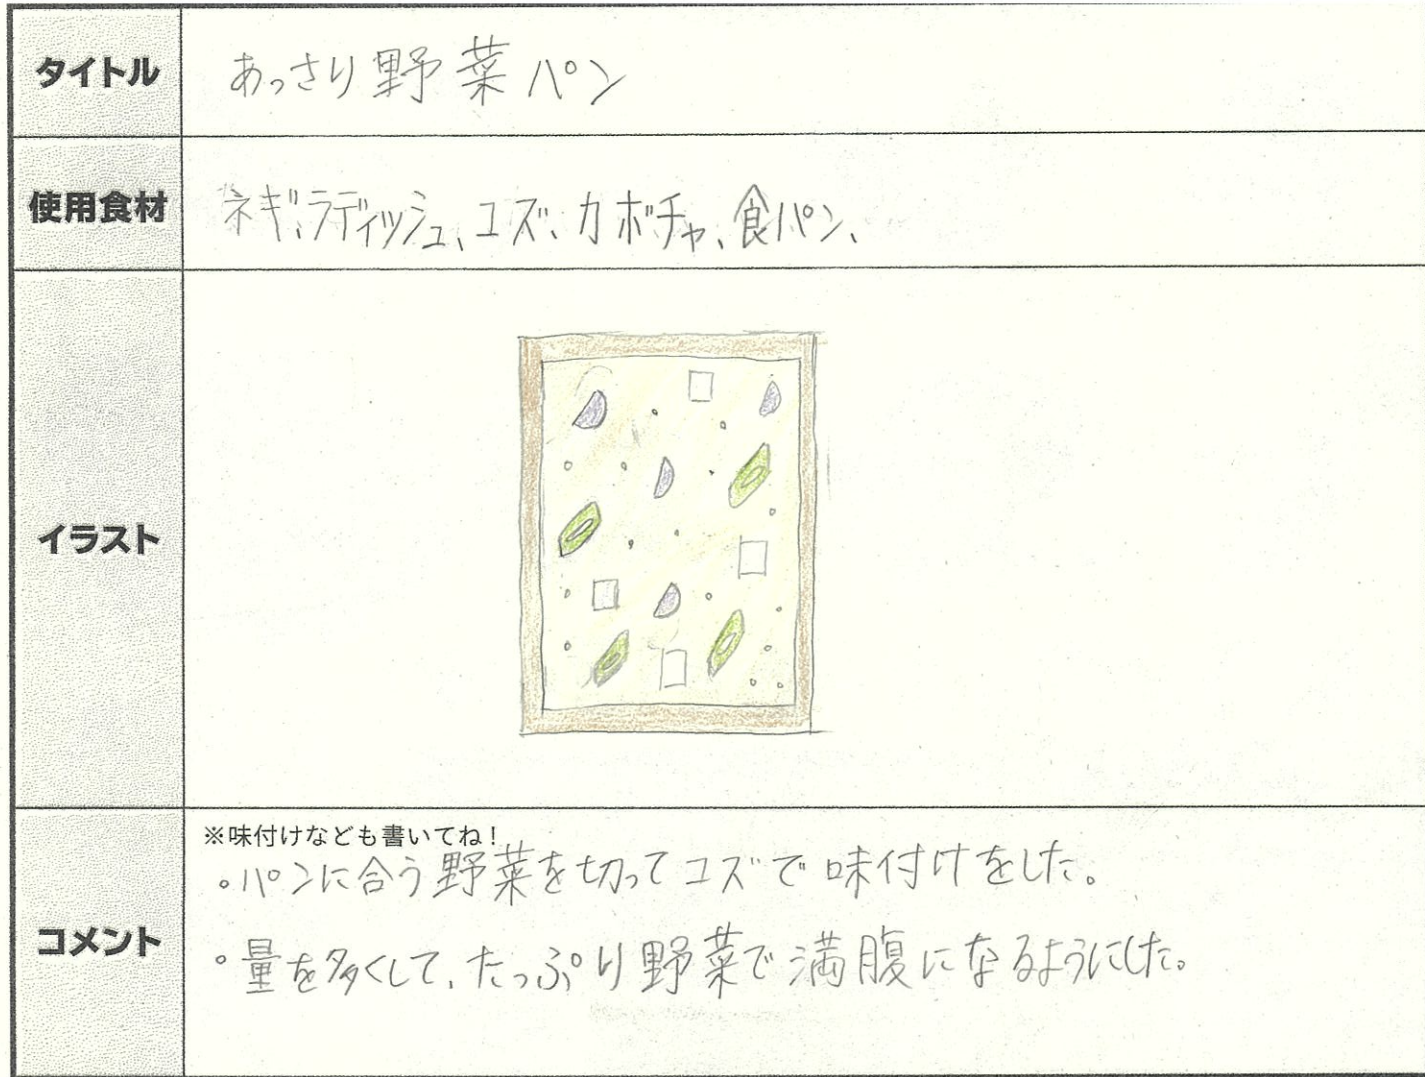 タイトル
あっさり野菜パン
使用食材
ネギ、ラディッシュ、コズ、カボチャ、食パン、
イラスト
コメント
※味付けなども書いてね!
。パンに合う野菜を切ってコズで味付けをした。
。量を多くして、たっぷり野菜で満腹になるようにした。